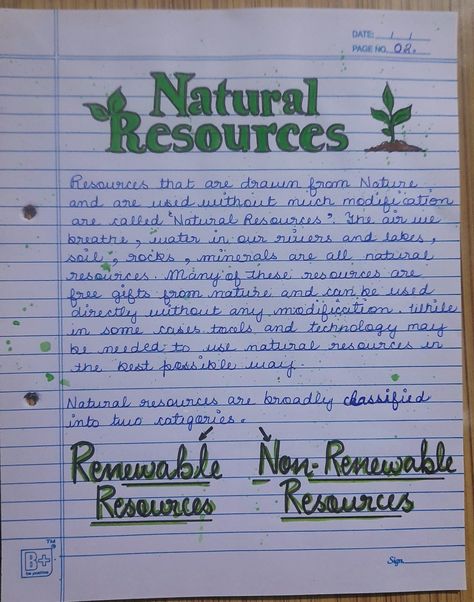 DATE: / /
PAGE NO. 08.
Natural
Resources
Resources that are drawn from Nature
and are used without much modification
are called "Natural Resources". The air we
breathe, water in our rivers and lakes,
soil, rocks, minerals are all natural
resources. Many of these resources are
free gifts from nature and can be used
directly without any modification. While
in some cases tools and technology may
be needed to use natural resources in
the best possible way.
Natural resources are broadly classified
into two categories.
Renewable Non-Renewable
Resources Resources
TM
B+
be positive
Sign.